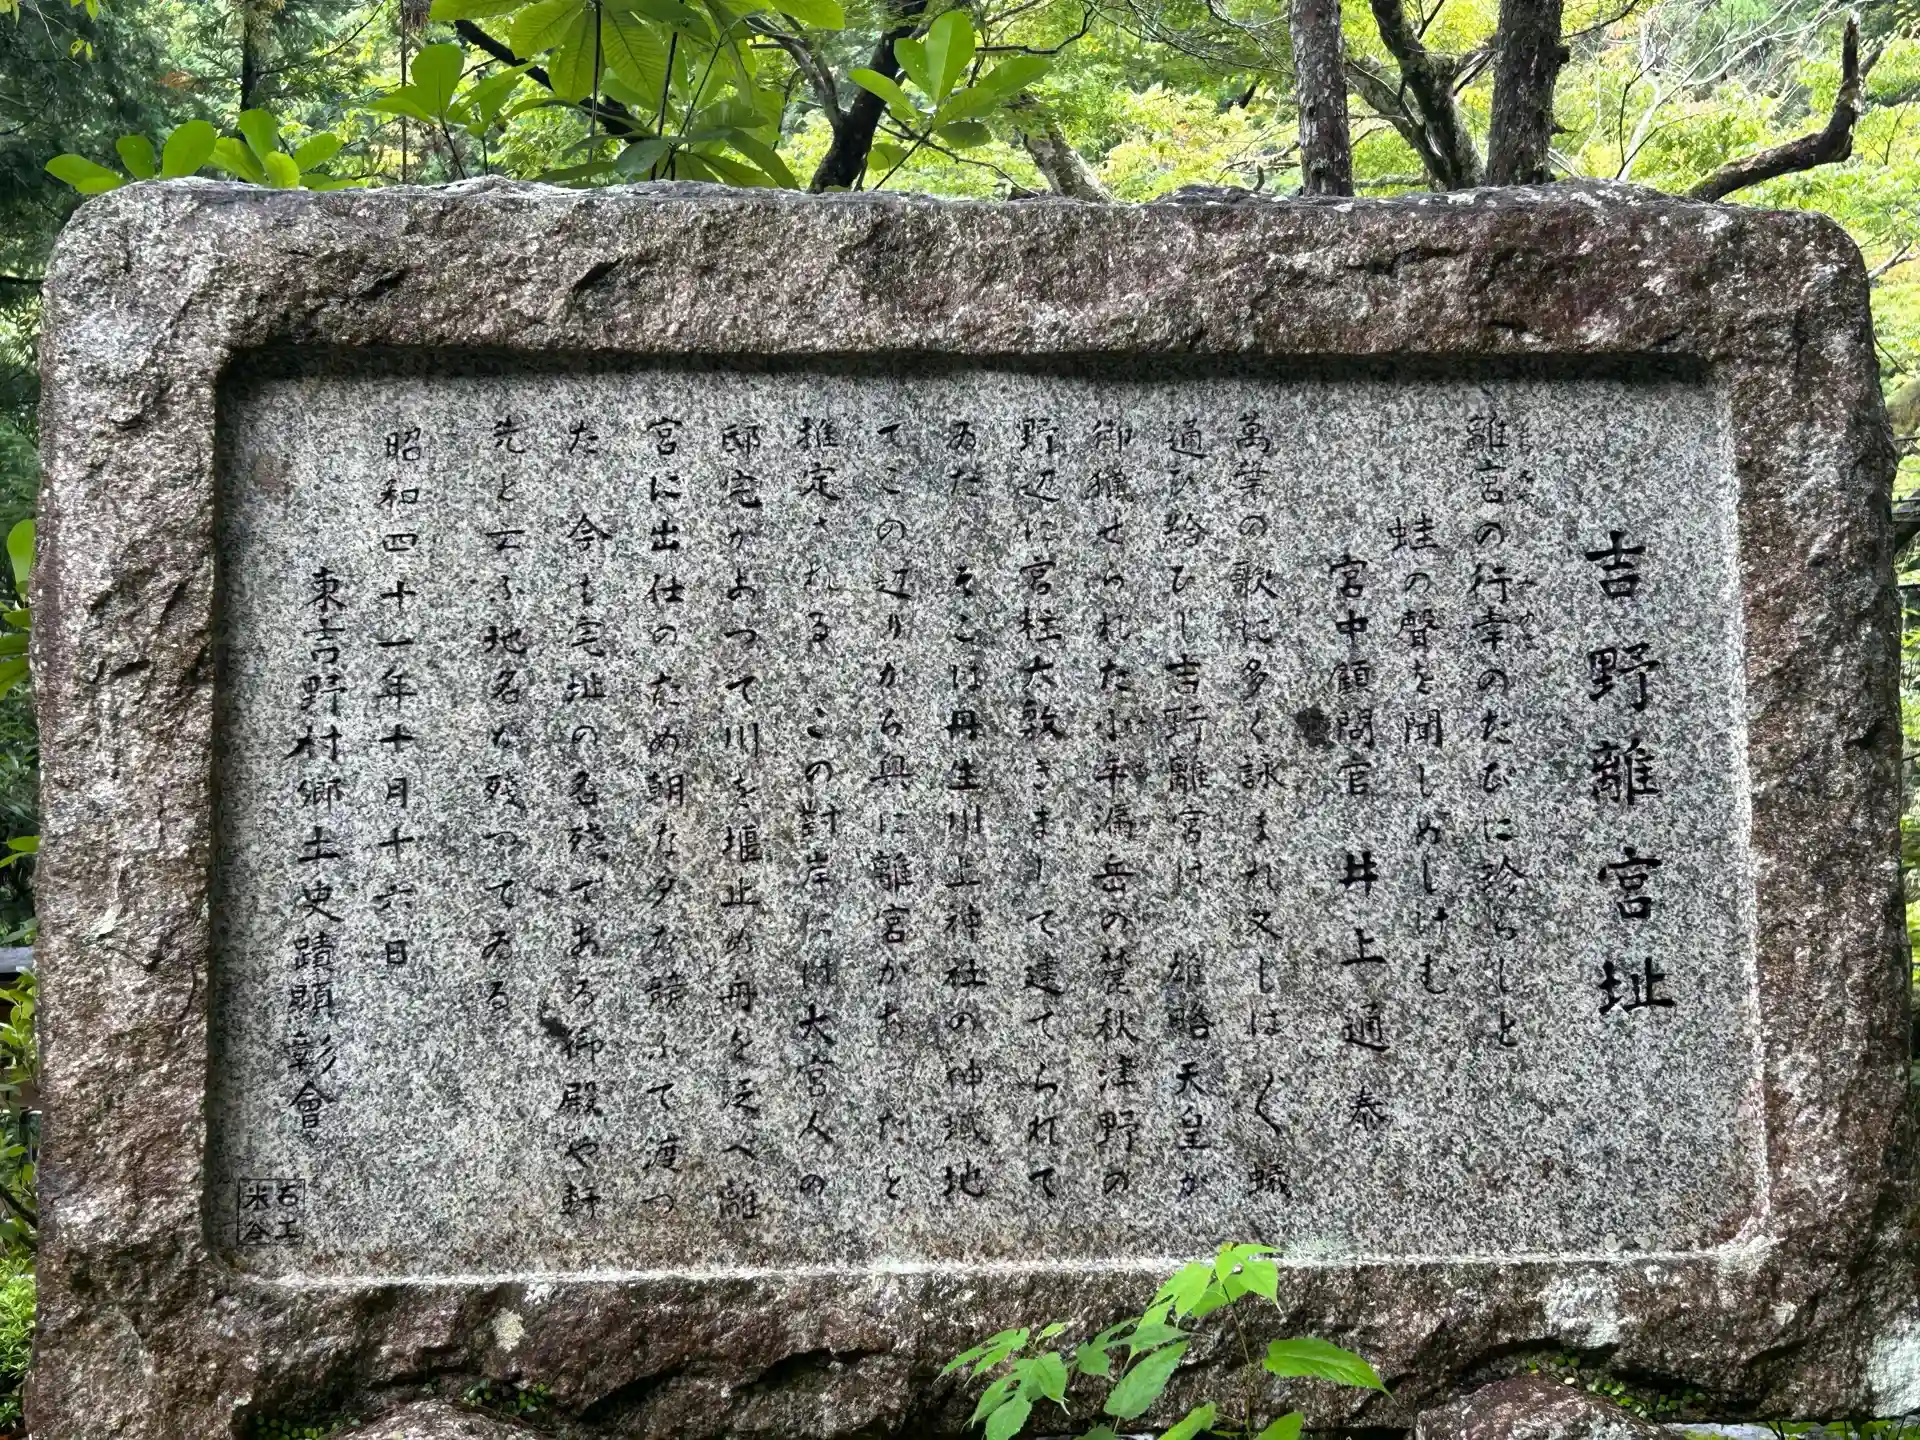 吉野離宮址
離宮の行幸のたびに珍らしと
蛙の聲を聞しめしけむ
宮中顧問官 井上通泰
萬葉の歌に多く詠まれ又しば〱蟻
通ひ給ひし吉野離宮は 雄略天皇が
御猟せられた小牟漏岳の麓秋津野の
野辺に宮柱太敷きまして建てられて
ゐた そこは丹生川上神社の神域地
でこの辺りから奥に離宮があったと
推定される この對岸には大宮人の
邸宅があつて川を堰止め舟を泛べ離
宮に出仕のため朝な夕な競ふて渡つ
た 今も宅址の名残である御殿や軒
先と云ふ地名が残つてゐる
昭和四十一年十月十六日
東吉野村郷土史蹟顕彰會
石工
米谷